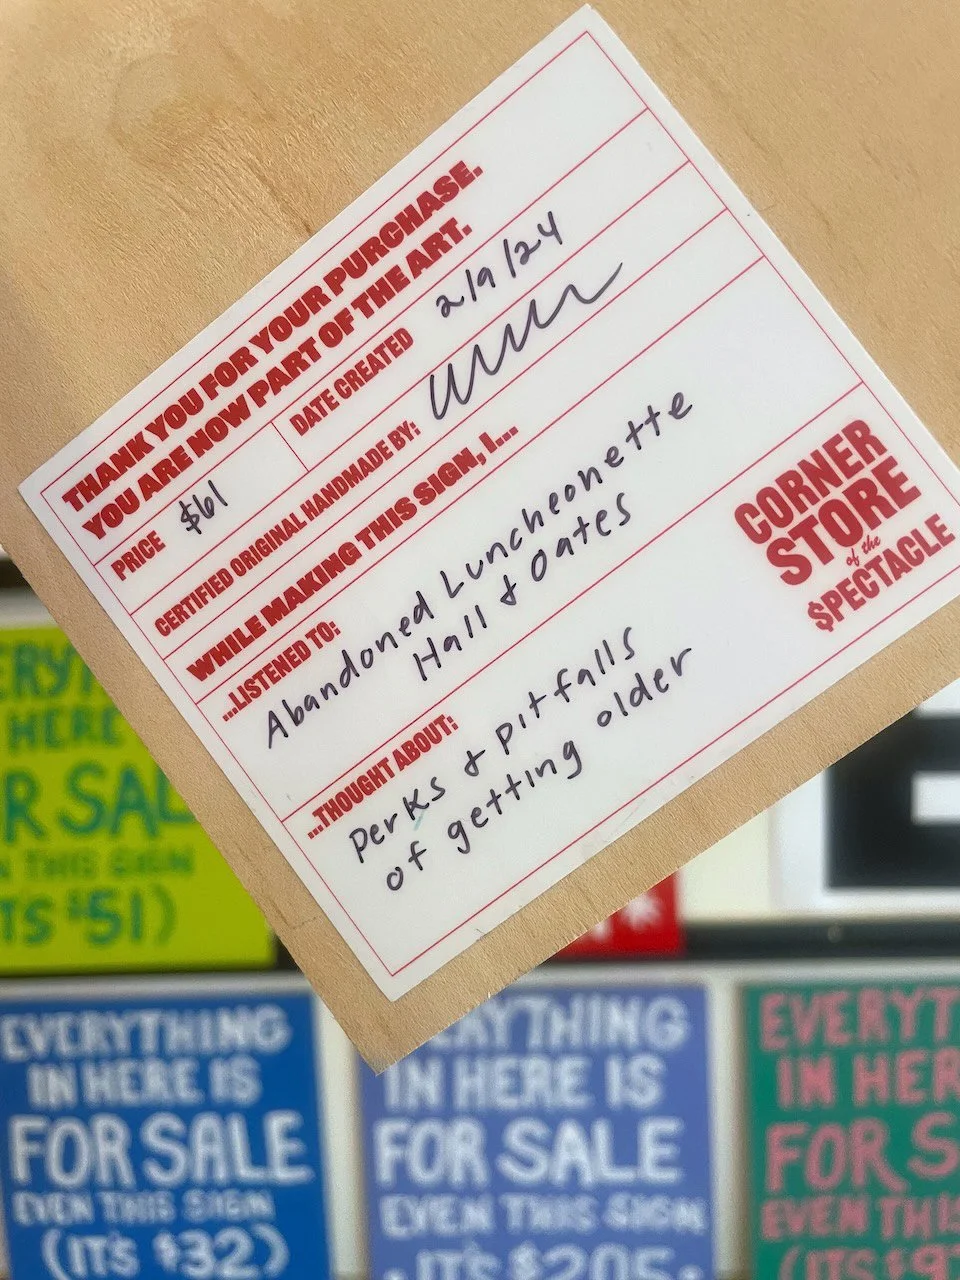 THANK YOU FOR YOUR PURCHASE.
YOU ARE NOW PART OF THE ART.
PRICE $61
DATE CREATED 2/9/24
CERTIFIED ORIGINAL HANDMADE BY:
WHILE MAKING THIS SIGN, I...
...LISTENED TO:
Abandoned Luncheonette
Hall & Oates
...THOUGHT ABOUT:
perks & pitfalls
of getting older
CORNER
STORE
of the
$PECTACLE
ERY
HERE
R SAL
N THIS SIGN
TS $51)
EVERYTHING
IN HERE IS
FOR SALE
EVEN THIS SIGN
(IT'S $32)
RYTHING
IN HERE IS
FOR SALE
EVEN THIS SIGN
IT'S $205
EVERYT
IN HER
FOR S
EVEN THIS
(IT'S $9